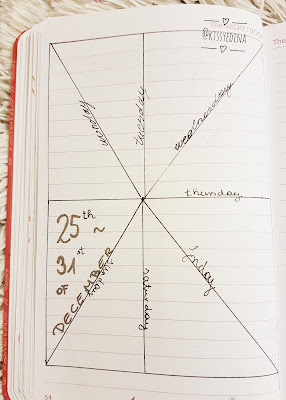 @KTSSYEDZIVA
monday
tuesday
wednesday
thursday
25th ~
31st
OF
DECEMBER
friday
saturday
54